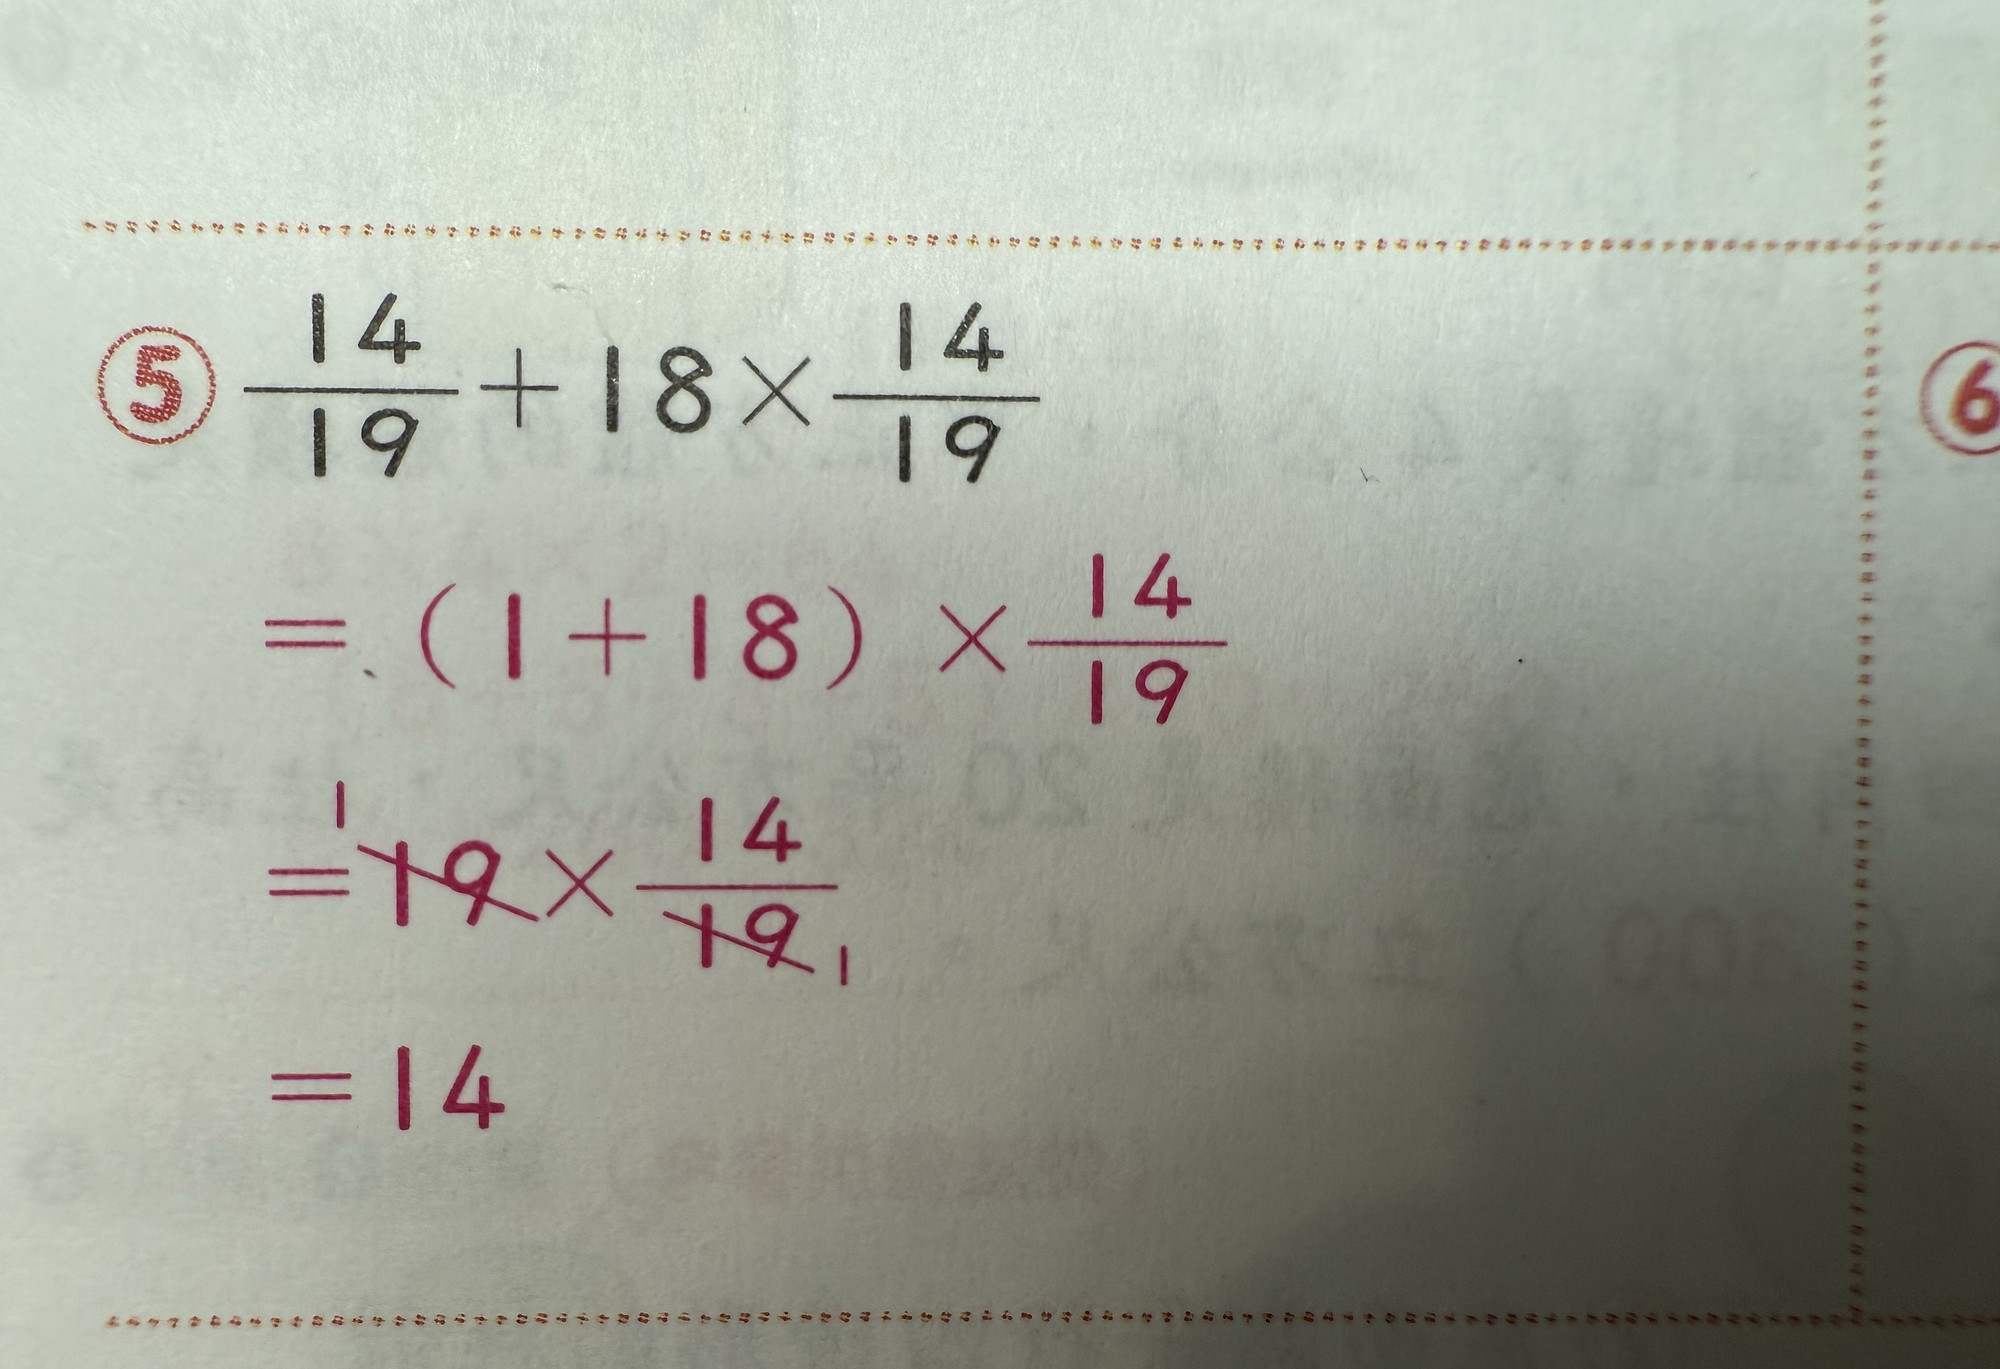 ⑤ 14/19 + 18 × 14/19
= (1 + 18) × 14/19
= 1 19 × 14/19 1
= 14
⑥